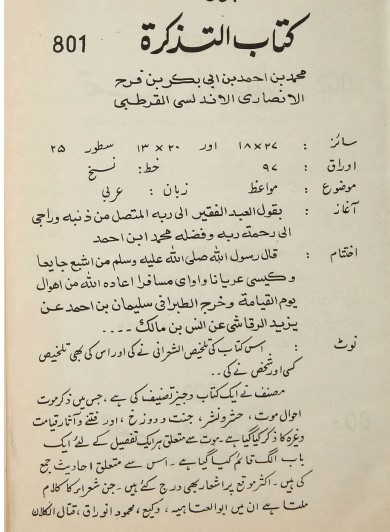 کتاب التذکرة 801
محمد بن احمد بن ابی بکر بن فرح
الانصاری الاندلسی القرطبی
سائز : ۲۷×۱۸ اور ۲۰×۱۳ سطور ۲۵
اوراق : ۹۷ خط: نسخ
موضوع : مواعظ زبان : عربی
آغاز : یقول العبد الفقیر الی ربه المتصل من ذنبه وراجی
الی رحمة ربه وفضله محمد ابن احمد
اختتام : قال رسول الله صلی الله علیه وسلم من اشبع جایعا
و کیسی عریانا واوای مسافرا اعاده الله من اهوال
یوم القیامة وخرج الطبرانی سلیمان بن احمد عن
یزید الرقاشی عن انس بن مالک ....
نوٹ : اس کتاب کی تلخیص الشعرانی نے کی اور اس کی بھی تلخیص
کسی اور شخص نے کی ..
مصنف نے ایک کتاب وجیز تصنیف کی ہے ، جس میں ذکر موت
احوال موت ، حشر و نشر ، جنت و دوزخ ، اور فتنے و آثار قیامت
وغیرہ کا ذکر کیا گیا ہے ۔ موت سے متعلق ہر ایک تفصیل کے لئے ایک
باب الگ قائم کیا گیا ہے ۔ اس سے متعلق احادیث جمع
کی ہیں ۔ اکثر موقع پر اشعار بھی درج کئے ہیں ۔ جن شعراء کا کلام
ملتا ہے ان میں ابوالعتاهیہ ، وکیع ، محمود انوراق ،